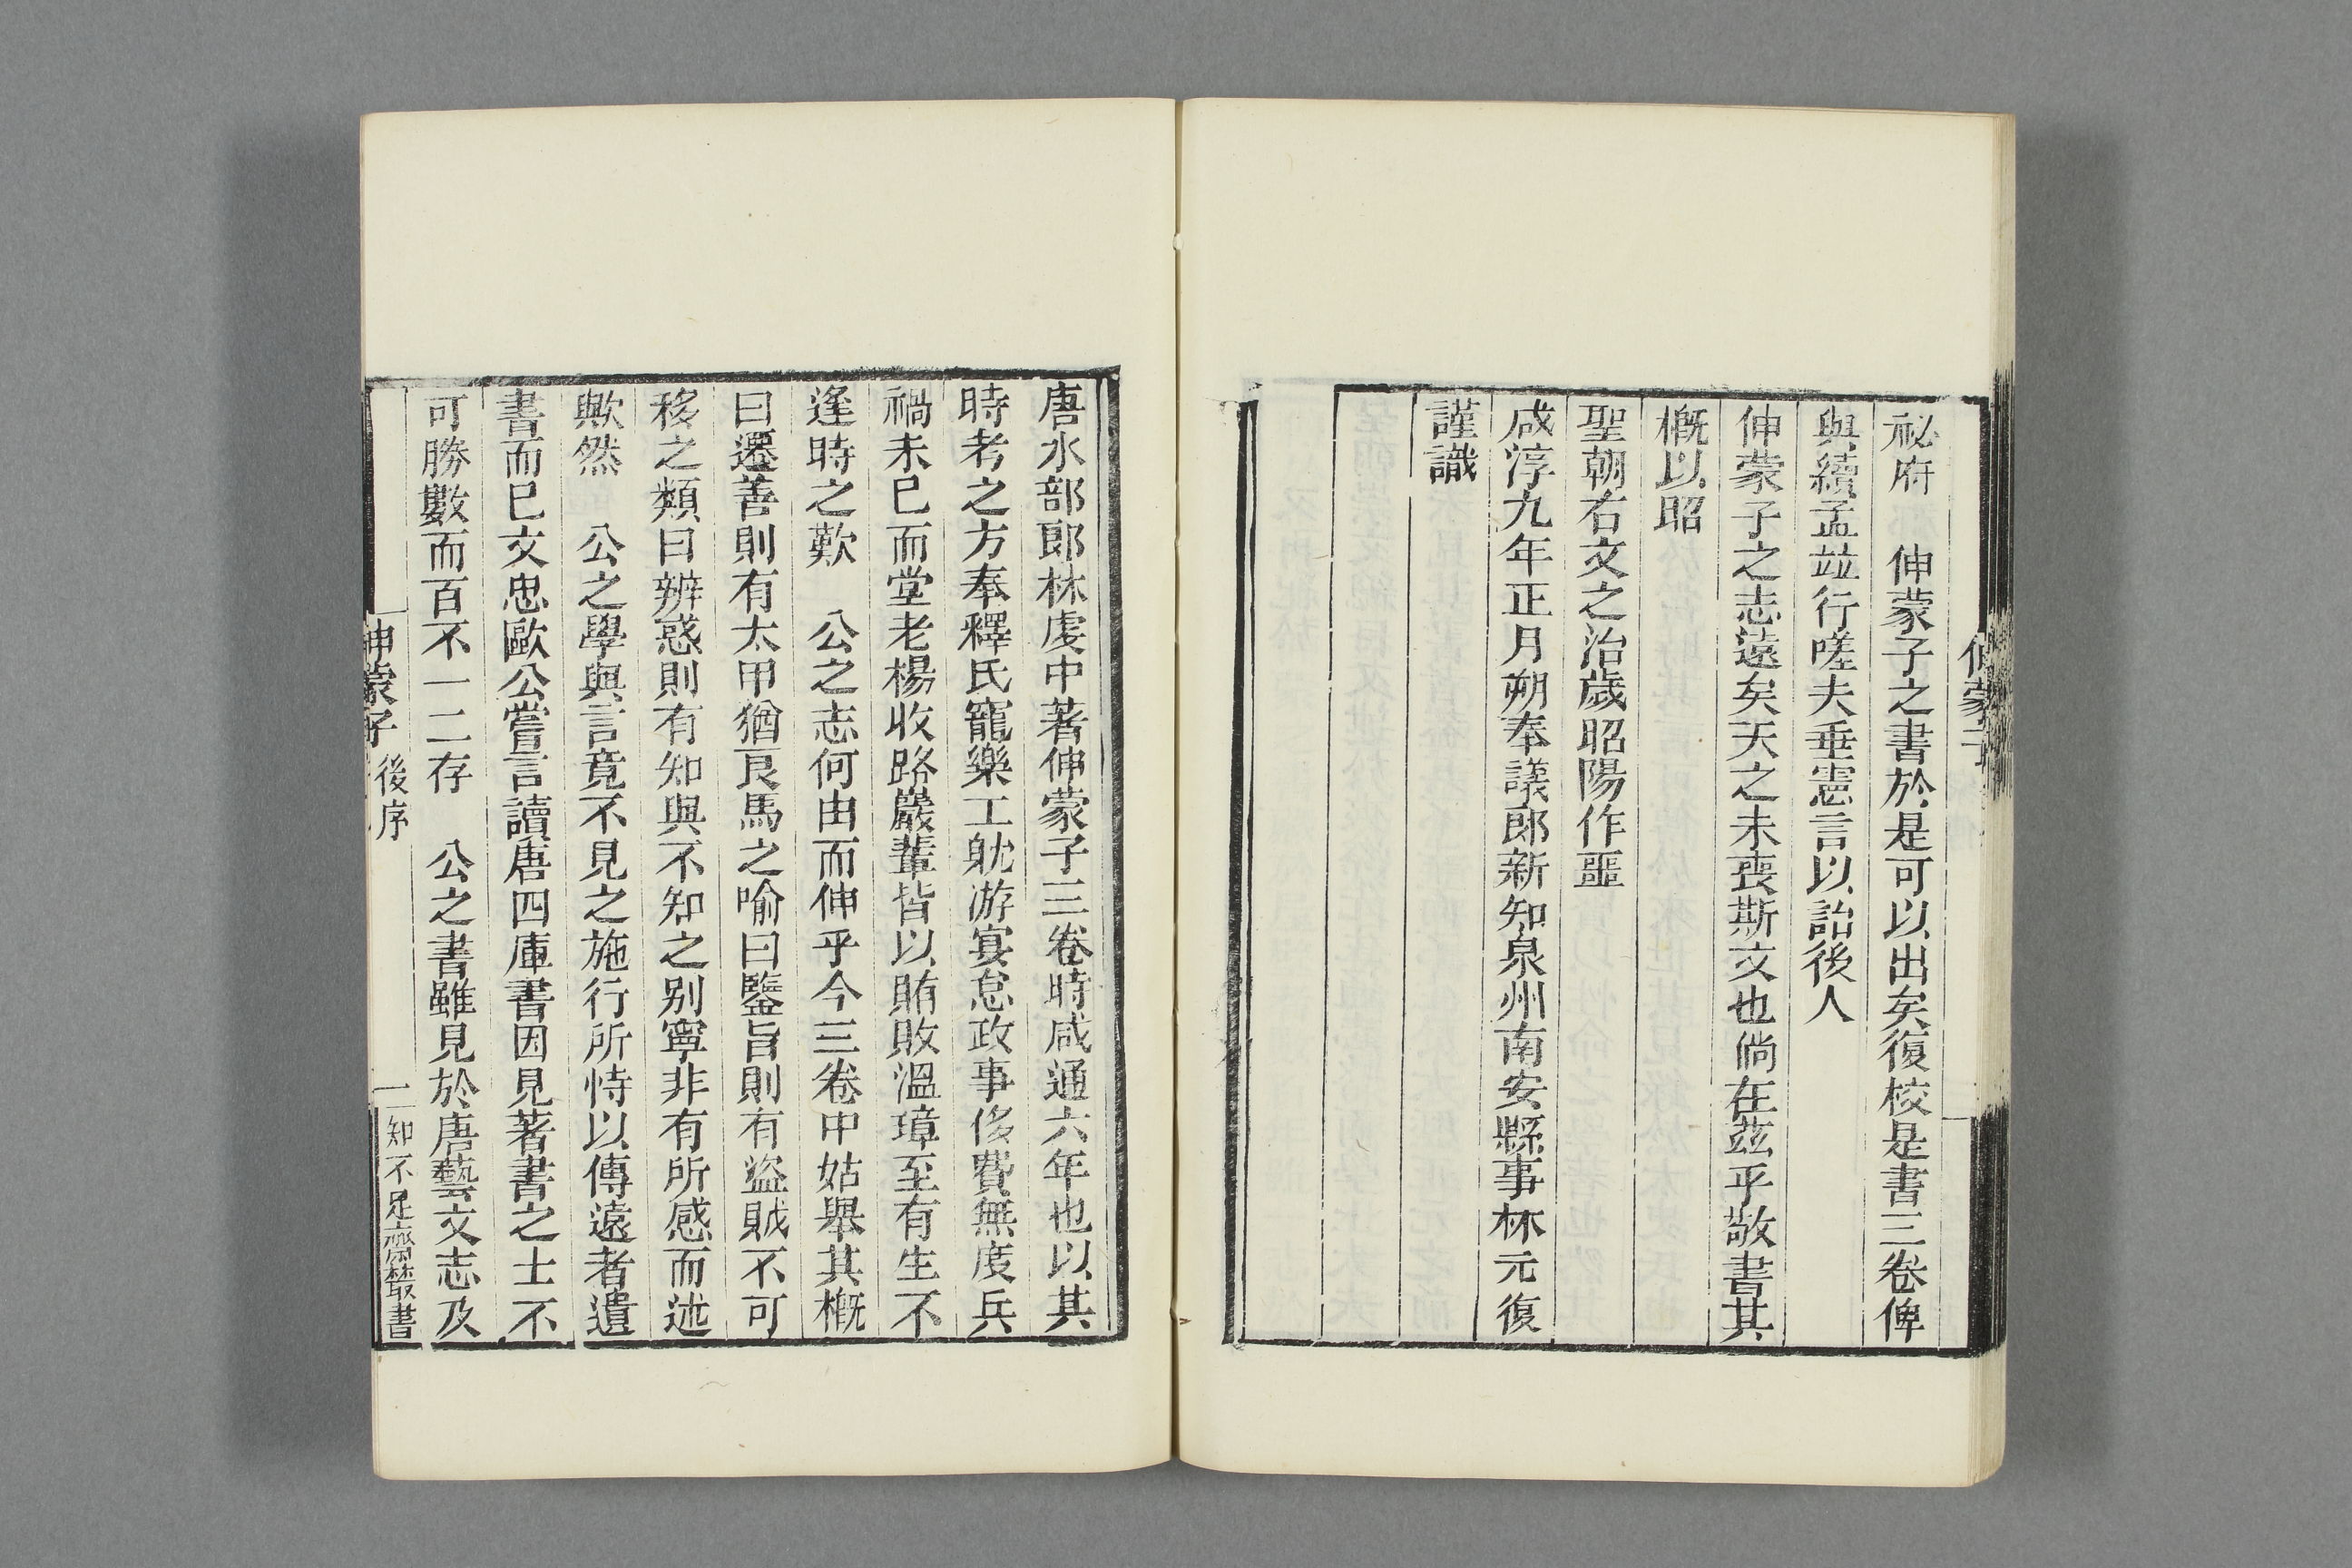 祕府　伸蒙子之書於是可以出矣復校是書三卷俾
與續孟竝行嗟夫垂憲言以詒後人
伸蒙子之志遠矣天之未喪斯文也倘在茲乎敬書其
概以昭
聖朝右文之治歲昭陽作噩
咸淳九年正月朔奉議郎新知泉州南安縣事林元復
謹識
唐水部郎林虔中著伸蒙子三卷時咸通六年也以其
時考之方奉釋氏寵樂工躭游宴怠政事侈費無度兵
禍未已而堂老楊收路巖輩皆以賄敗溫璋至有生不
逢時之歎　公之志何由而伸乎今三卷中姑舉其概
曰遷善則有太甲猶良馬之喻曰鑒旨則有盜賊不可
移之類曰辨惑則有知與不知之別寧非有所感而述
歟然　公之學與言竟不見之施行所恃以傳遠者遺
書而已文忠歐公嘗言讀唐四庫書因見著書之士不
可勝數而百不一二存　公之書雖見於唐藝文志及
伸蒙子　後序　一　知不足齋叢書